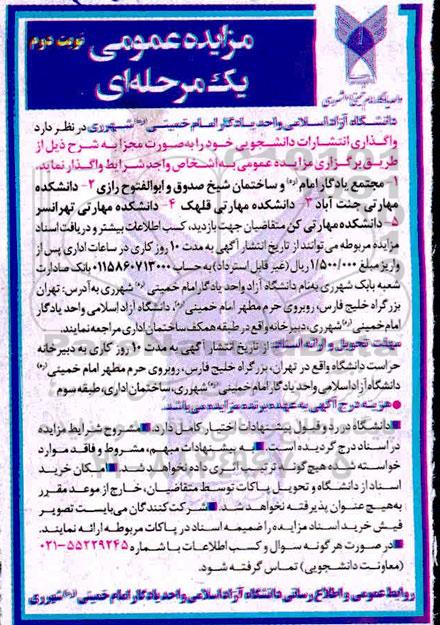 مزایده عمومی
نوبت دوم
یک مرحله‌ای
دانشگاه آزاد اسلامی واحد یادگار امام خمینی (ره) شهرری در نظر دارد
واگذاری انتشارات دانشجویی خود را به صورت مجزا به شرح ذیل از
طریق برگزاری مزایده عمومی به اشخاص واجد شرایط واگذار نماید.
۱- مجتمع یادگار امام (ره) و ساختمان شیخ صدوق و ابوالفتوح رازی ۲- دانشکده
مهارتی جنت آباد ۳- دانشکده مهارتی قلهک ۴- دانشکده مهارتی تهرانسر
۵- دانشکده مهارتی کن متقاضیان جهت بازدید، کسب اطلاعات بیشتر و دریافت اسناد
مزایده مربوطه می‌توانند از تاریخ انتشار آگهی به مدت ۱۰ روز کاری در ساعات اداری پس از
واریز مبلغ ۱/۵۰۰/۰۰۰ ریال (غیر قابل استرداد) به حساب ۰۱۱۵۸۶۰۷۱۳۰۰۰ بانک صادرات
شعبه بانک شهرری به‌نام دانشگاه آزاد واحد یادگار امام خمینی (ره) شهرری به آدرس: تهران
بزرگراه خلیج فارس، روبروی حرم مطهر امام خمینی (ره)، دانشگاه آزاد اسلامی واحد یادگار
امام خمینی (ره) شهرری، دبیرخانه واقع در طبقه همکف ساختمان اداری مراجعه نمایند.
مهلت تحویل و ارائه اسناد: از تاریخ انتشار آگهی به مدت ۱۰ روز کاری به دبیرخانه
حراست دانشگاه واقع در تهران، بزرگراه خلیج فارس، روبروی حرم مطهر امام خمینی (ره)
دانشگاه آزاد اسلامی واحد یادگار امام خمینی (ره) شهرری، ساختمان اداری، طبقه سوم
● هزینه درج آگهی به عهده برنده مزایده می‌باشد.
■ دانشگاه در رد و قبول پیشنهادات اختیار کامل دارد. ■ مشروح شرایط مزایده
در اسناد درج گردیده است. ■ به پیشنهادات مبهم، مشروط و فاقد موارد
خواسته شده هیچ گونه ترتیب اثری داده نخواهد شد. ■ امکان خرید
اسناد از دانشگاه و تحویل پاکات توسط متقاضیان، خارج از موعد مقرر
به هیچ عنوان پذیرفته نخواهد شد. ■ شرکت کنندگان می‌بایست تصویر
فیش خرید اسناد مزایده را ضمیمه اسناد در پاکات مربوطه ارائه نمایند.
■ در صورت هر گونه سوال و کسب اطلاعات با شماره ۵۵۲۲۹۲۴۵-۰۲۱
(معاونت دانشجویی) تماس گرفته شود.
روابط عمومی و اطلاع رسانی دانشگاه آزاد اسلامی واحد یادگار امام خمینی (ره) شهرری